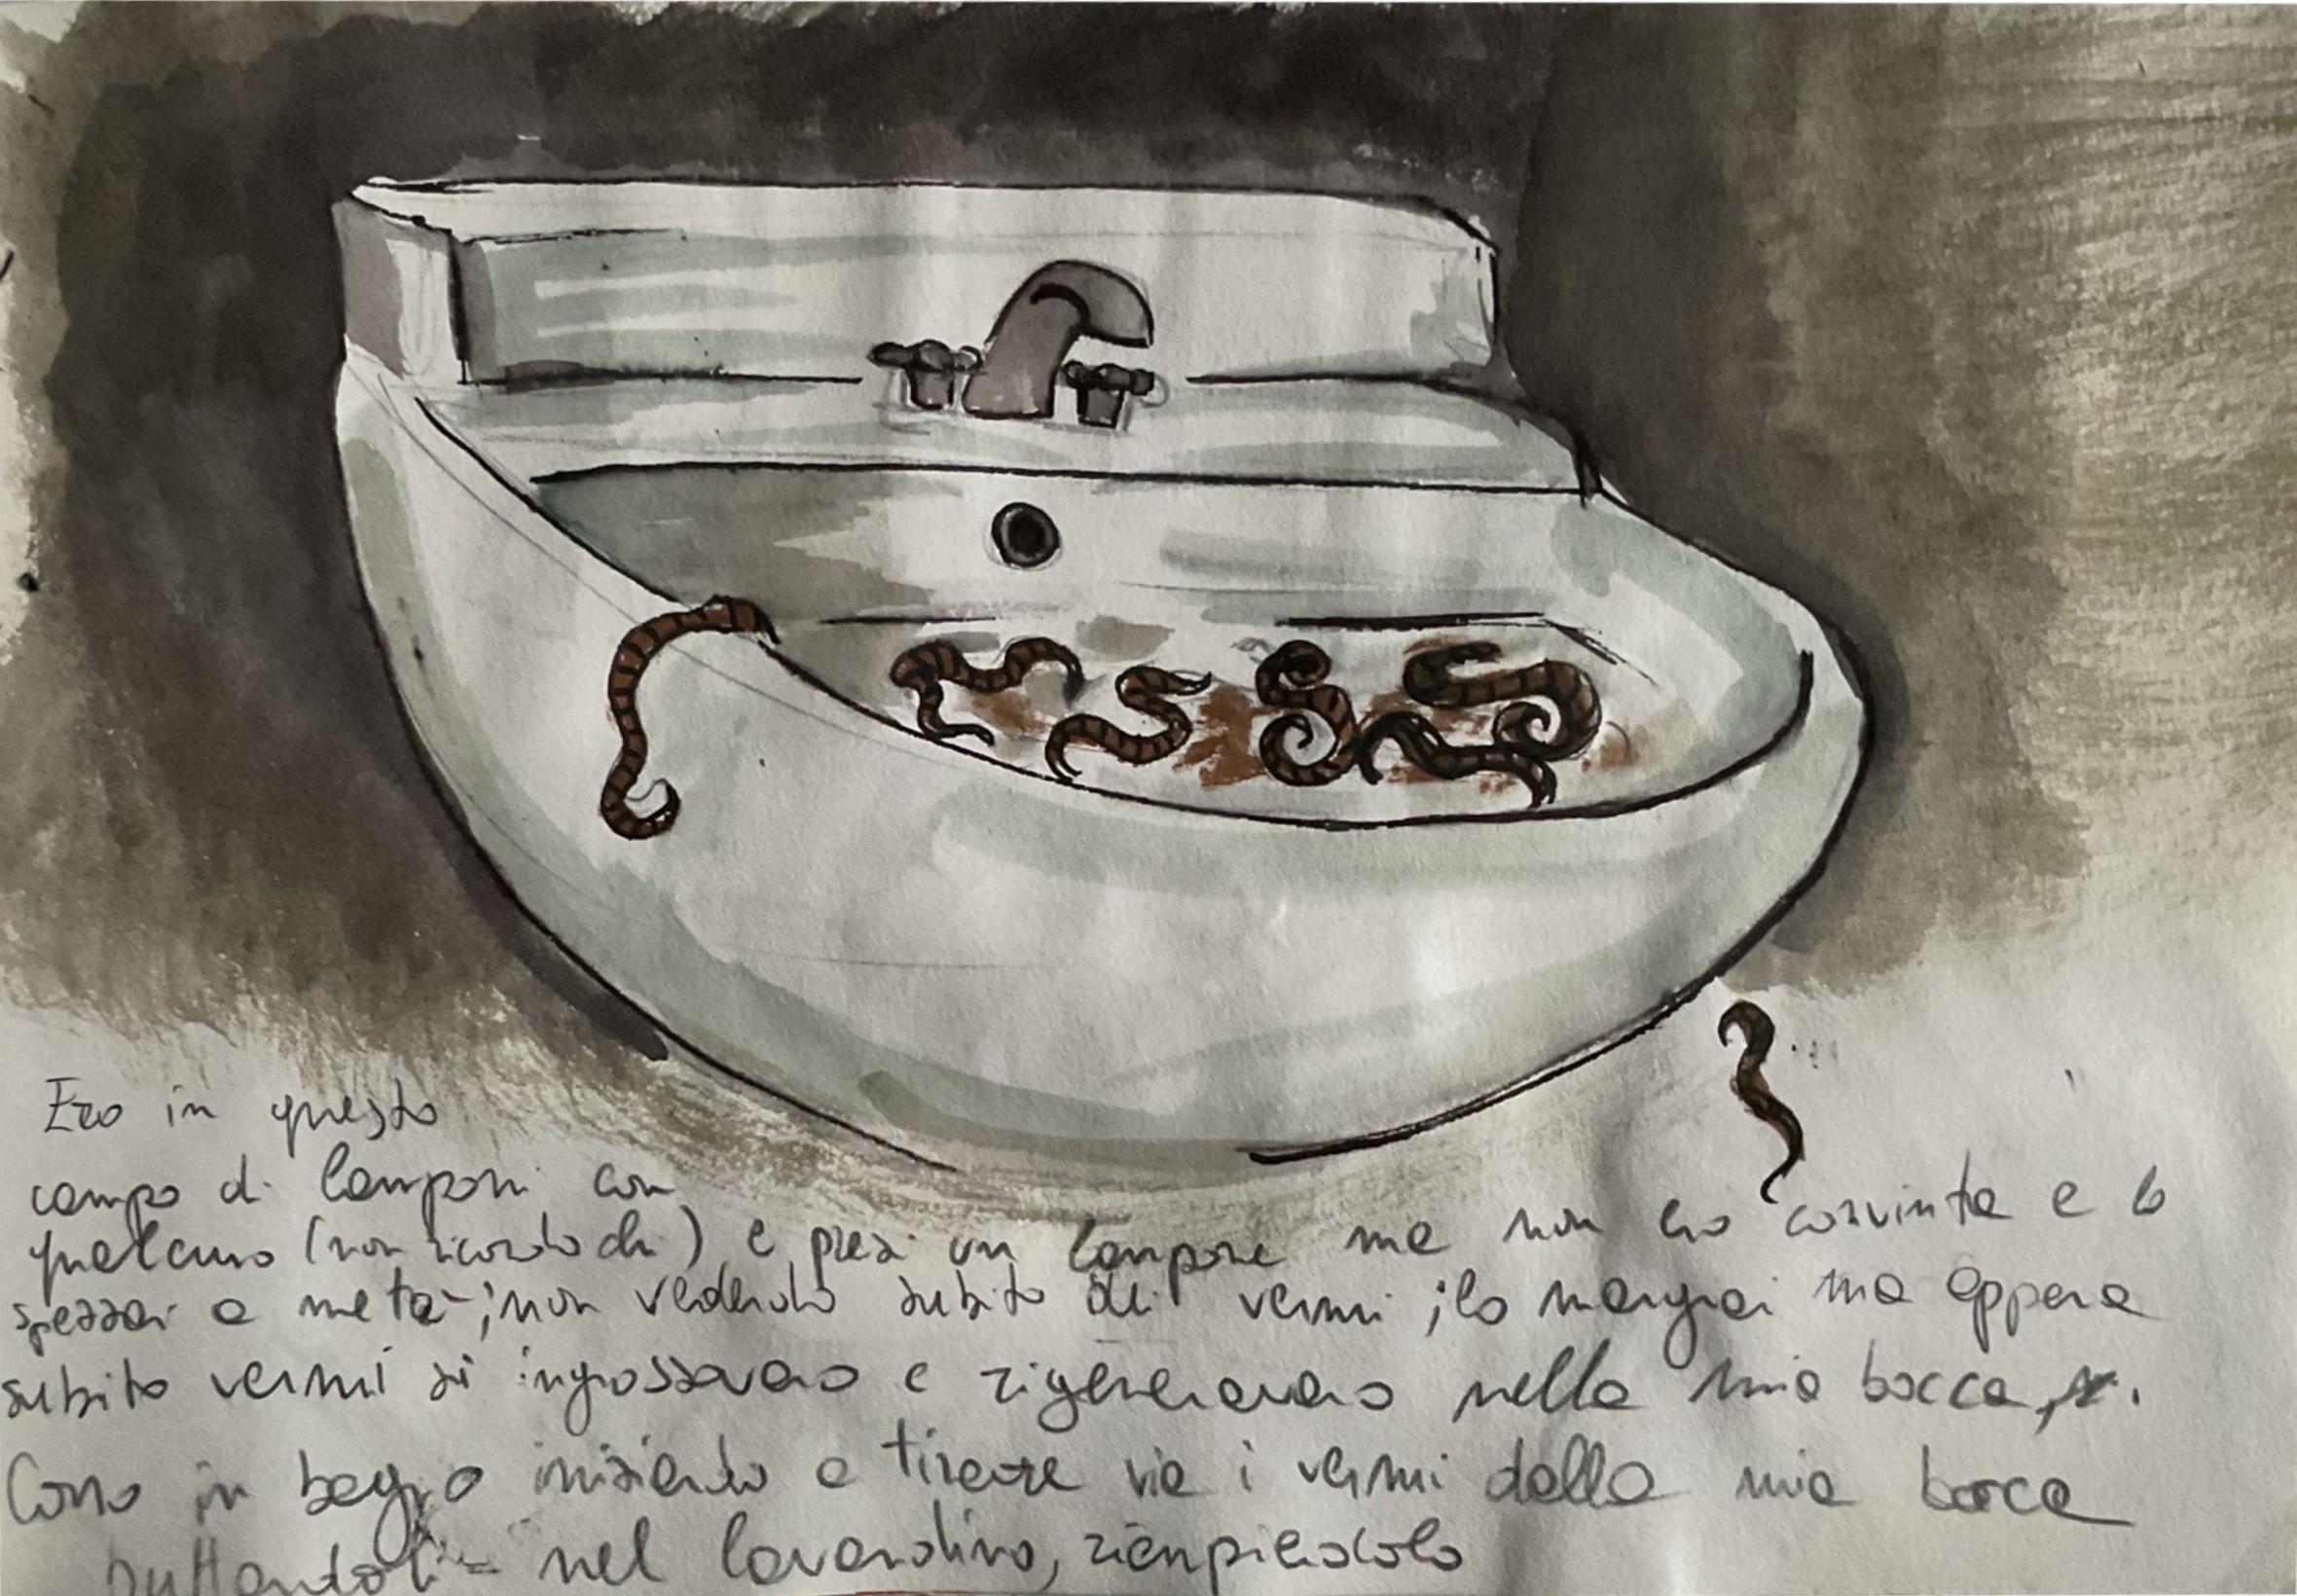 Ero in questo
campo di lamponi con
qualcuno (non ricordo chi) e presi un lampone ma non ero convinta e lo
spezzai a metà, non vedendo subito dei vermi, lo mangiai ma appena
subito vermi si ingrossavano e rigeneravano nella mia bocca
Corro in bagno iniziando a tirare via i vermi dalla mia bocca
buttandoli nel lavandino, riempiendolo